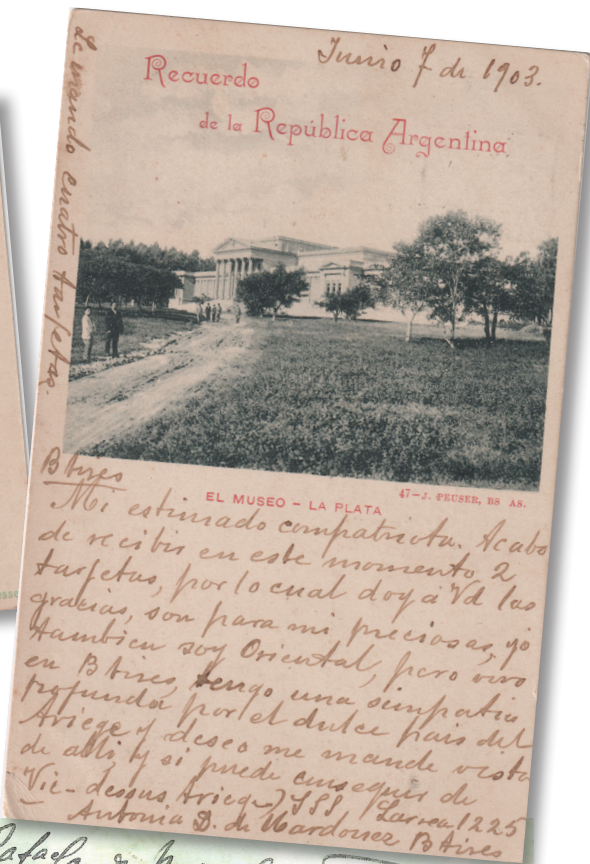 Junio 7 de 1903.
Le mando cuatro tarjetas.
Recuerdo
de la República Argentina
EL MUSEO – LA PLATA
47–J. PEUSER, BS AS.
B Aires
Mi estimado compatriota. Acabo
de recibir en este momento 2
tarjetas, por lo cual doy á Vd las
gracias, son para mi preciosas, yo
tambien soy Oriental, pero vivo
en B Aires, tengo una simpatia
profunda por el dulce pais del
Ariege y deseo me mande vista
de alli y si puede conseguir de
Vic-dessus Ariege) SSS Larrea 1225
Antonia D. de B Aires